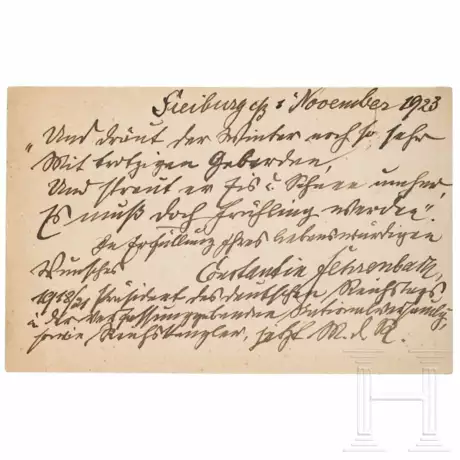 Freiburg 1. November 1923
"Und dräut der Winter noch so sehr
Mit trotzigen Geberden,
Und streut er Eis u. Schnee umher,
Es muß doch Frühling werden".
In Erfüllung Ihres liebenswürdigen
Wunsches Constantin Fehrenbach,
1918/20 Präsident des deutschen Reichstags
u. der verfassunggebenden Nationalversammlung,
Reichskanzler, jetzt M. d. R.
H